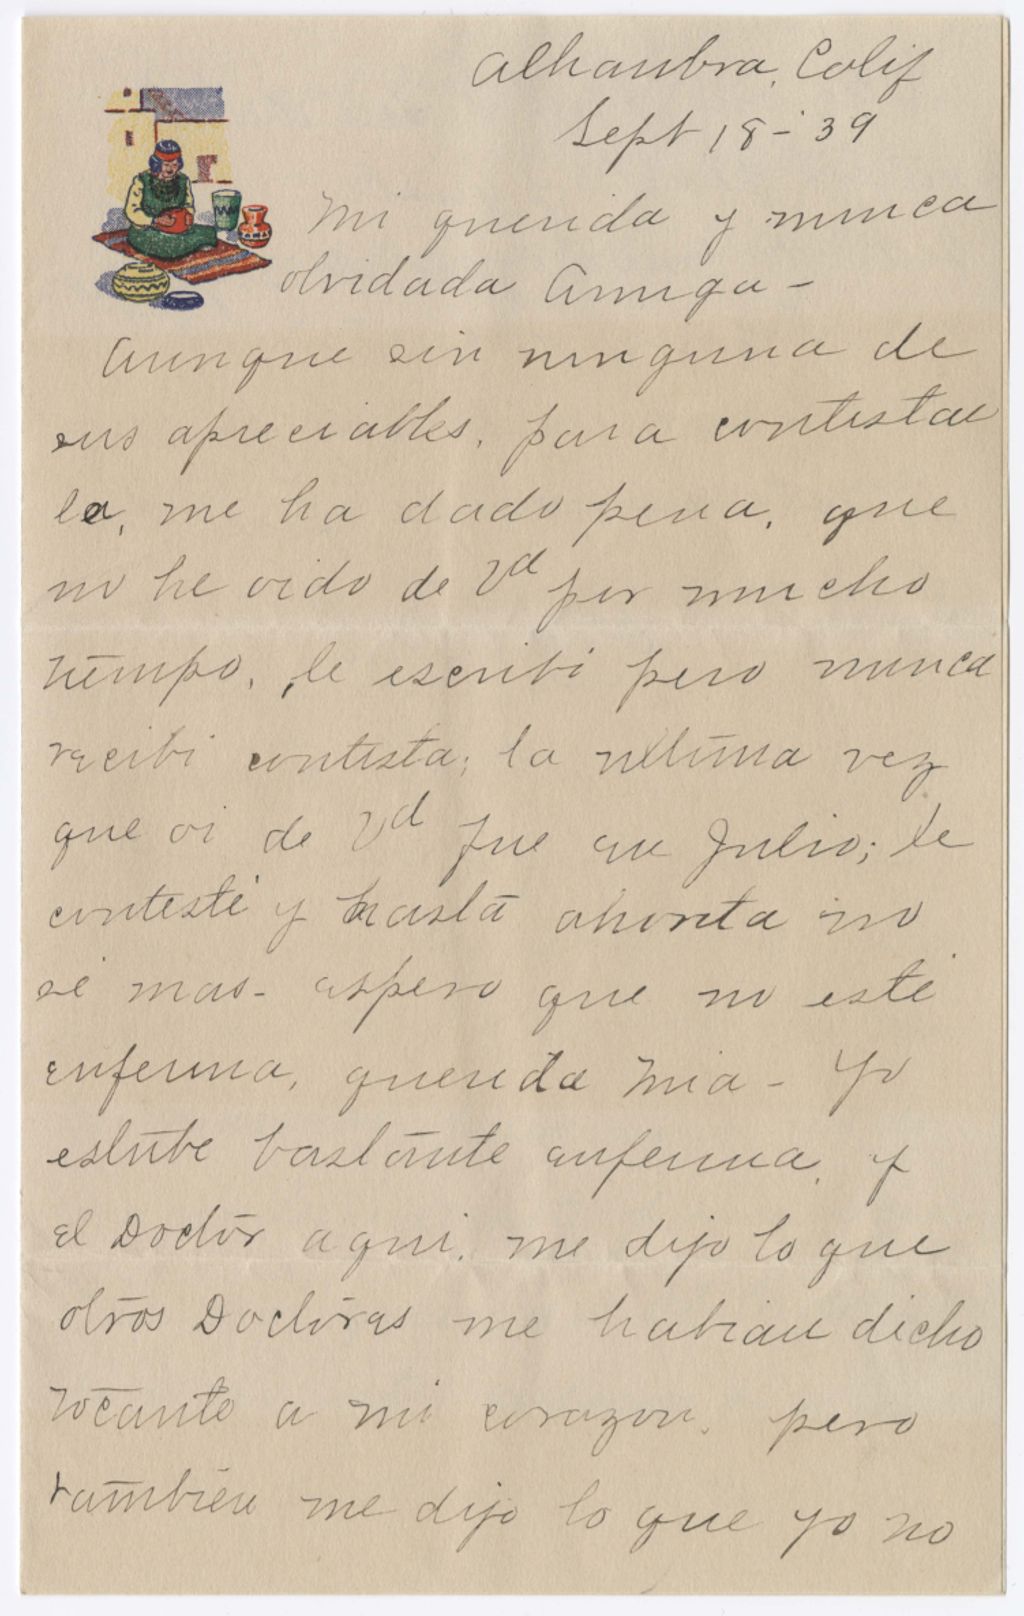 Alhambra, Calif
Sept 18-'39
Mi querida y nunca
olvidada Amiga -
Aunque sin ninguna de
sus apreciables, para contestar
la, me ha dado pena, que
no he oido de Vd por mucho
tiempo, le escribi pero nunca
recibi contesta; la ultima vez
que oi de Vd fue en Julio; le
contesté y hasta ahorita no
sé mas - espero que no esté
enferma, querida mia - Yo
estube bastante enferma, y
el Doctor aqui, me dijo lo que
otros Doctores me habian dicho
tocante a mi corazon, pero
tambien me dijo lo que yo no